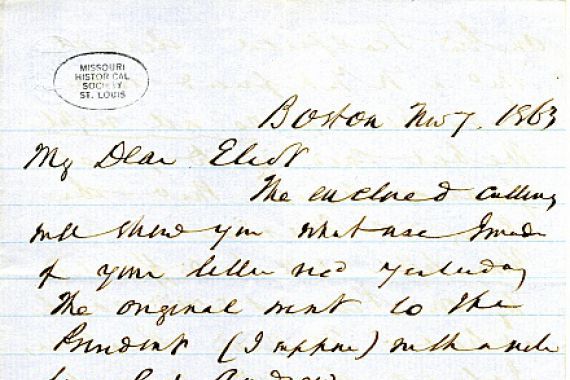 MISSOURI
HISTORICAL
SOCIETY
ST. LOUIS
Boston Nov 7. 1863
My Dear Eliot
The enclosed cutting
will show you what use I made
of your letter recd yesterday
The original went to the
President (I suppose) with a